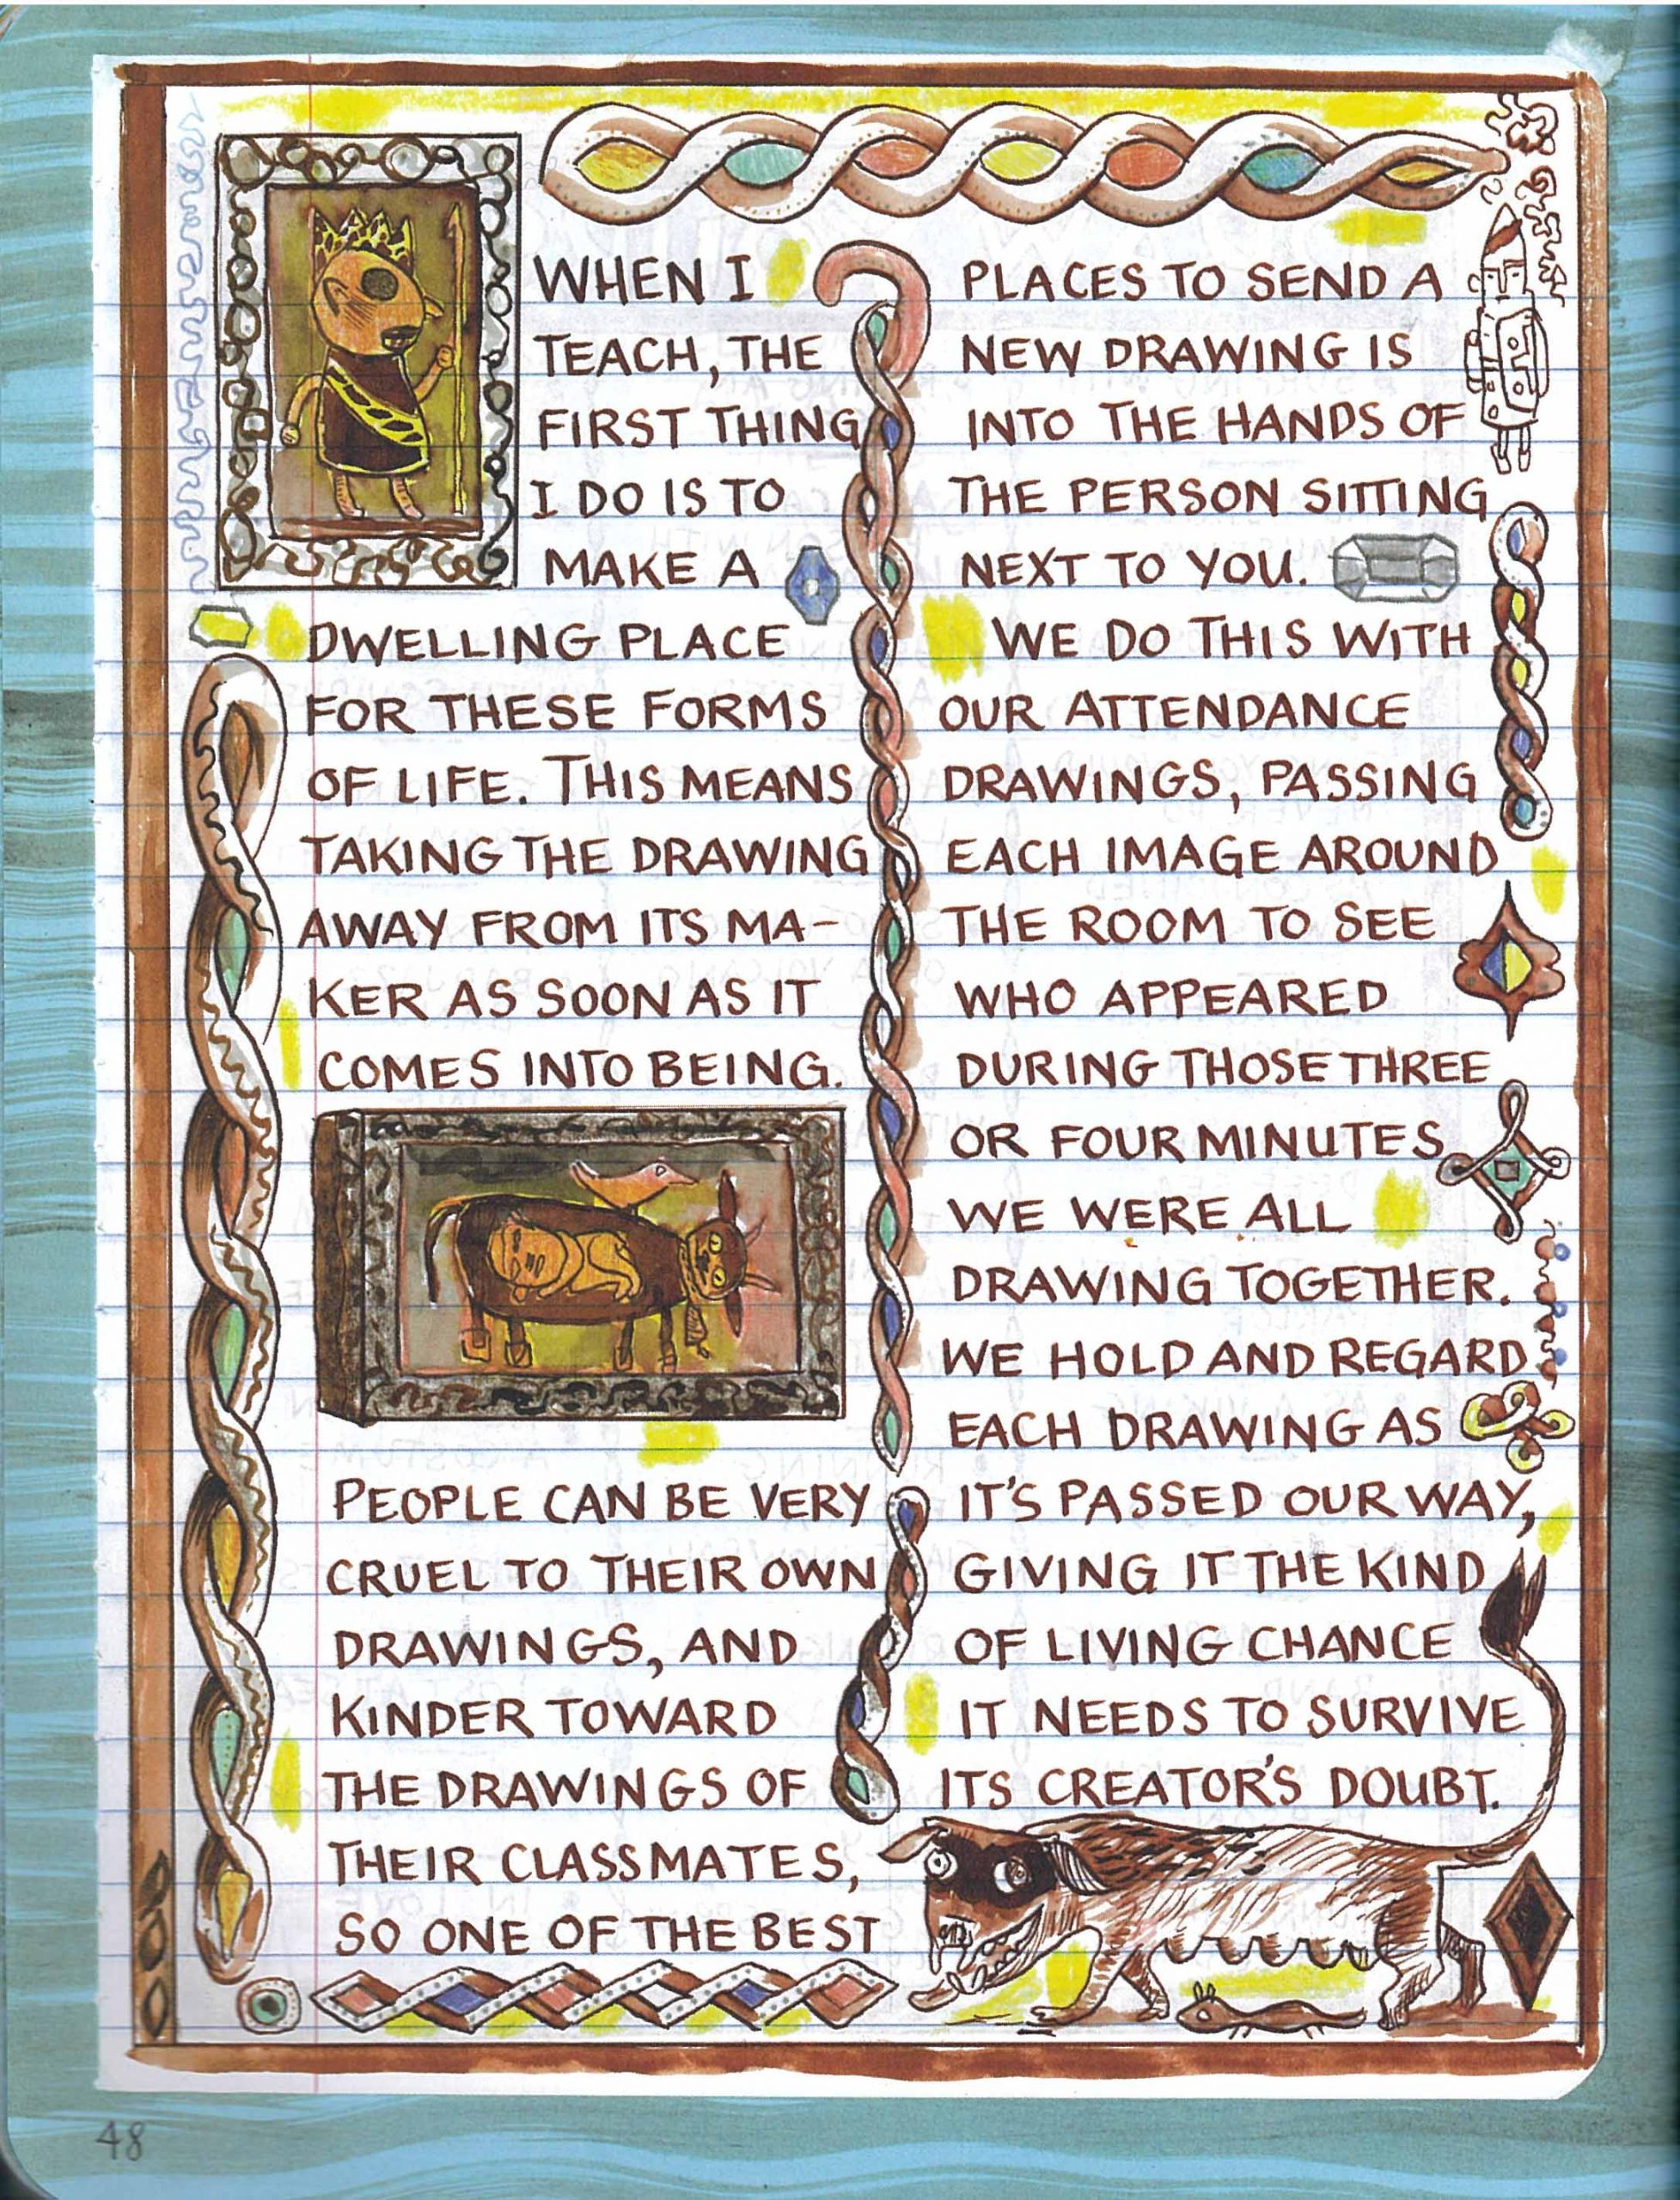 WHEN I
TEACH, THE
FIRST THING
I DO IS TO
MAKE A
DWELLING PLACE
FOR THESE FORMS
OF LIFE. THIS MEANS
TAKING THE DRAWING
AWAY FROM ITS MA-
KER AS SOON AS IT
COMES INTO BEING.
PEOPLE CAN BE VERY
CRUEL TO THEIR OWN
DRAWINGS, AND
KINDER TOWARD
THE DRAWINGS OF
THEIR CLASSMATES,
SO ONE OF THE BEST
PLACES TO SEND A
NEW DRAWING IS
INTO THE HANDS OF
THE PERSON SITTING
NEXT TO YOU.
WE DO THIS WITH
OUR ATTENDANCE
DRAWINGS, PASSING
EACH IMAGE AROUND
THE ROOM TO SEE
WHO APPEARED
DURING THOSE THREE
OR FOUR MINUTES
WE WERE ALL
DRAWING TOGETHER.
WE HOLD AND REGARD
EACH DRAWING AS
IT'S PASSED OUR WAY,
GIVING IT THE KIND
OF LIVING CHANCE
IT NEEDS TO SURVIVE
ITS CREATOR'S DOUBT.
48